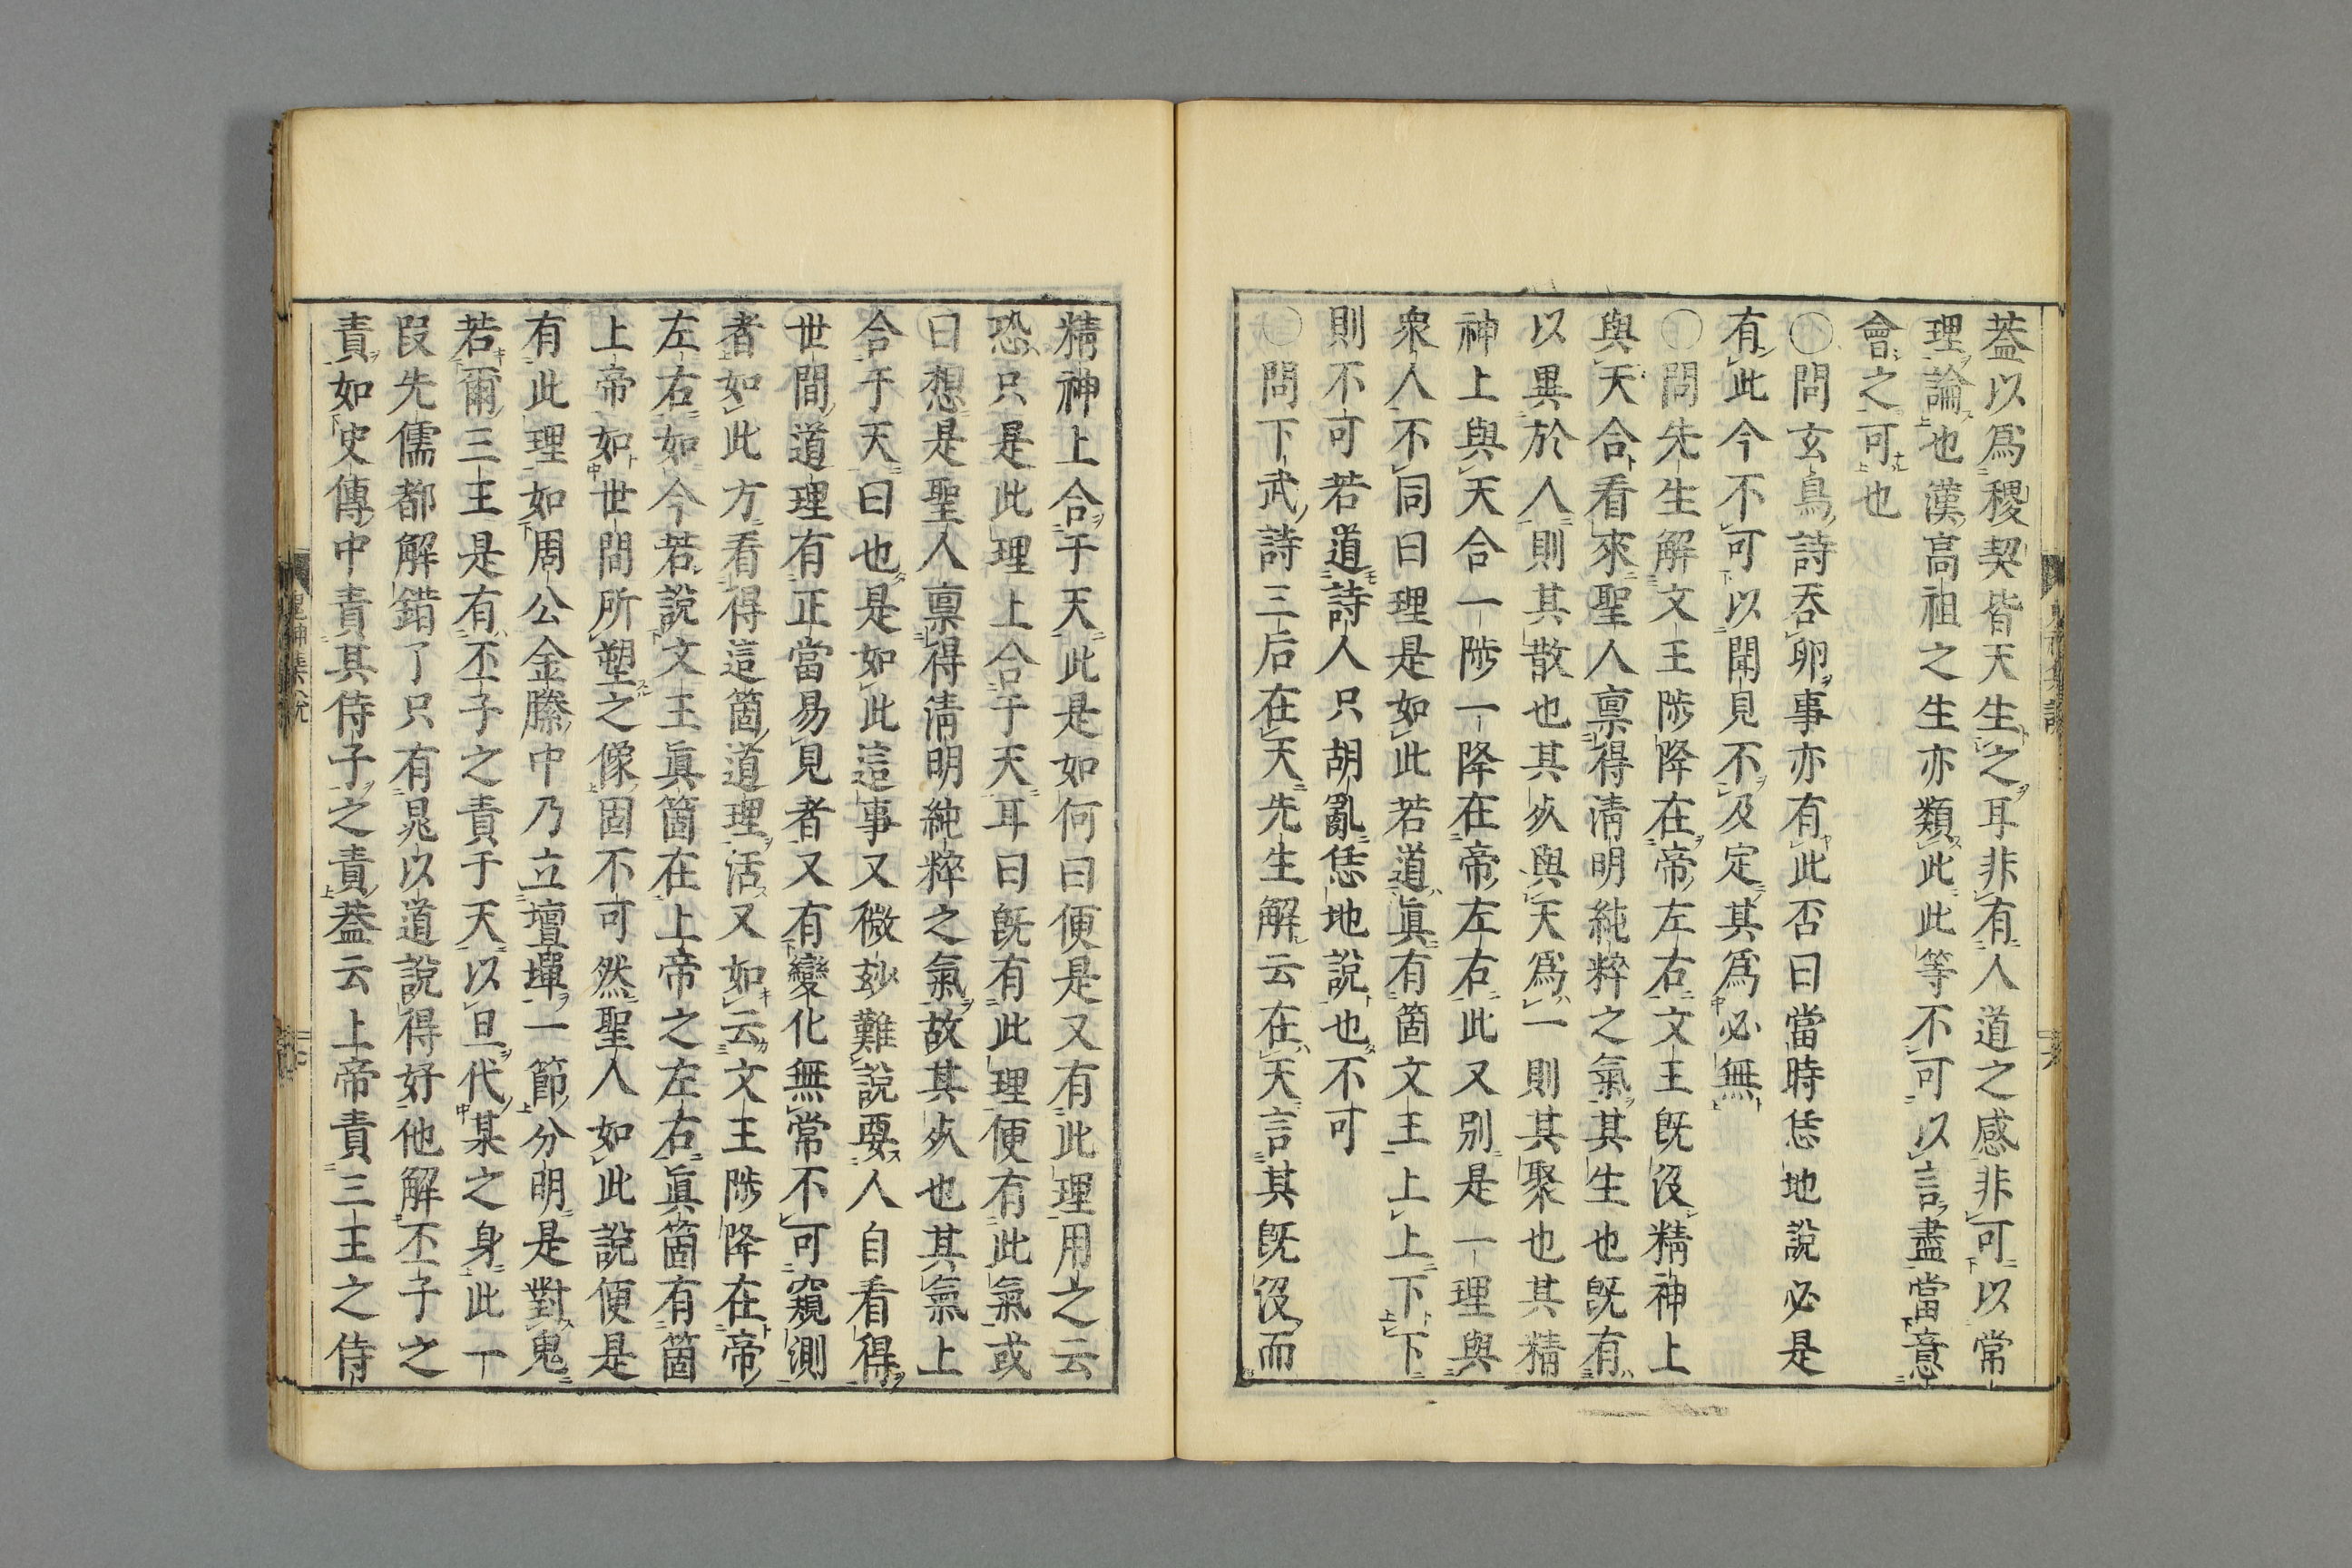 葢以爲稷契皆天生之耳非有人道之感非可以常
理論也漢高祖之生亦類此此等不可以言盡當意
會之可也
○問玄鳥詩吞卵事亦有此否曰當時恁地說必是
有此今不可以聞見不及定其爲必無
○問先生解文王陟降在帝左右文王旣沒精神上
與天合看來聖人稟得清明純粹之氣其生也旣有
以異於人則其散也其死與天爲一則其聚也其精
神上與天合一陟一降在帝左右此又别是一理與
衆人不同曰理是如此若道眞有箇文王上上下下
則不可若道詩人只胡亂恁地說也不可
○問下武詩三后在天先生解云在天言其旣沒而
精神上合于天此是如何曰便是又有此理用之云
恐只是此理上合于天耳曰旣有此理便有此氣或
曰想是聖人稟得清明純粹之氣故其死也其氣上
合于天曰也是如此這事又微玅難說要人自看得
世間道理有正當易見者又有變化無常不可窺測
者如此方看得這箇道理活又如云文王陟降在帝
左右如今若說文王眞箇在上帝之左右眞箇有箇
上帝如世間所塑之像固不可然聖人如此說便是
有此理如周公金縢中乃立壇墠一節分明是對鬼
若爾三王是有丕子之責于天以旦代某之身此一
叚先儒都解錯了只有晁以道說得好他解丕子之
責如史傳中責其侍子之責葢云上帝責三王之侍
鬼神集說